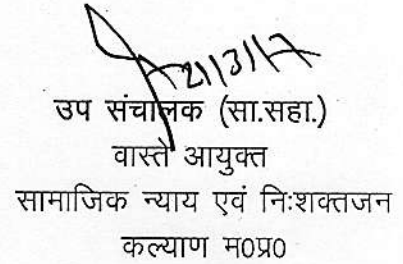 21/3/17
उप संचालक (सा.सहा.)
वास्ते आयुक्त
सामाजिक न्याय एवं निःशक्तजन
कल्याण म0प्र0